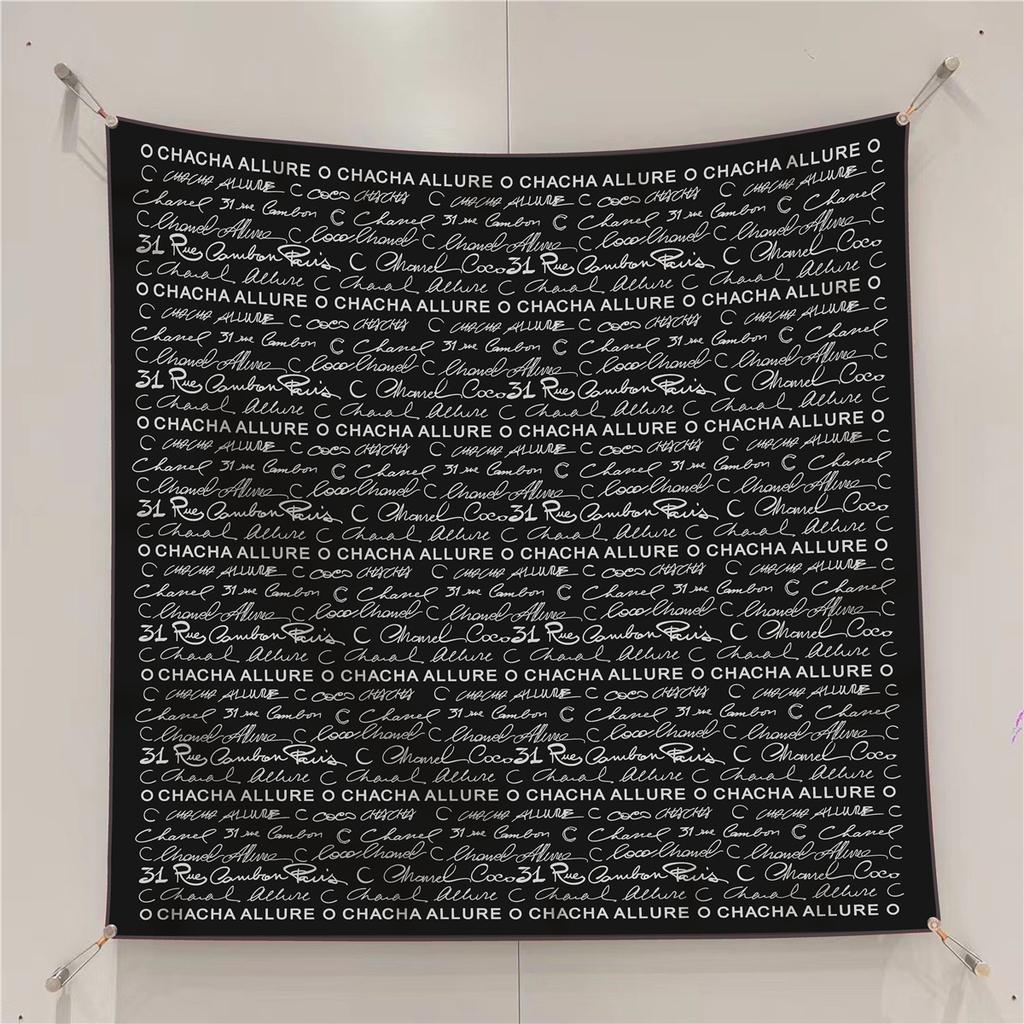 O CHACHA ALLURE O CHACHA ALLURE O CHACHA ALLURE O CHACHA ALLURE O
C CHACHA ALLURE C COCO CHACHA C CHACHA ALLURE C COCO CHACHA C CHACHA ALLURE C
Chanel 31 rue Cambon C Chanel 31 rue Cambon C Chanel 31 rue Cambon C Chanel
C Chanel Allure C Coco Chanel C Chanel Allure C Coco Chanel C Chanel Allure C
31 Rue Cambon Paris C Chanel Coco 31 Rue Cambon Paris C Chanel Coco
C Chanel Allure C Chanel Allure C Chanel Allure C Chanel Allure C
O CHACHA ALLURE O CHACHA ALLURE O CHACHA ALLURE O CHACHA ALLURE O
C CHACHA ALLURE C COCO CHACHA C CHACHA ALLURE C COCO CHACHA C CHACHA ALLURE C
Chanel 31 rue Cambon C Chanel 31 rue Cambon C Chanel 31 rue Cambon C Chanel
C Chanel Allure C Coco Chanel C Chanel Allure C Coco Chanel C Chanel Allure C
31 Rue Cambon Paris C Chanel Coco 31 Rue Cambon Paris C Chanel Coco
C Chanel Allure C Chanel Allure C Chanel Allure C Chanel Allure C
O CHACHA ALLURE O CHACHA ALLURE O CHACHA ALLURE O CHACHA ALLURE O
C CHACHA ALLURE C COCO CHACHA C CHACHA ALLURE C COCO CHACHA C CHACHA ALLURE C
Chanel 31 rue Cambon C Chanel 31 rue Cambon C Chanel 31 rue Cambon C Chanel
C Chanel Allure C Coco Chanel C Chanel Allure C Coco Chanel C Chanel Allure C
31 Rue Cambon Paris C Chanel Coco 31 Rue Cambon Paris C Chanel Coco
C Chanel Allure C Chanel Allure C Chanel Allure C Chanel Allure C
O CHACHA ALLURE O CHACHA ALLURE O CHACHA ALLURE O CHACHA ALLURE O
C CHACHA ALLURE C COCO CHACHA C CHACHA ALLURE C COCO CHACHA C CHACHA ALLURE C
Chanel 31 rue Cambon C Chanel 31 rue Cambon C Chanel 31 rue Cambon C Chanel
C Chanel Allure C Coco Chanel C Chanel Allure C Coco Chanel C Chanel Allure C
31 Rue Cambon Paris C Chanel Coco 31 Rue Cambon Paris C Chanel Coco
C Chanel Allure C Chanel Allure C Chanel Allure C Chanel Allure C
O CHACHA ALLURE O CHACHA ALLURE O CHACHA ALLURE O CHACHA ALLURE O
C CHACHA ALLURE C COCO CHACHA C CHACHA ALLURE C COCO CHACHA C CHACHA ALLURE C
Chanel 31 rue Cambon C Chanel 31 rue Cambon C Chanel 31 rue Cambon C Chanel
C Chanel Allure C Coco Chanel C Chanel Allure C Coco Chanel C Chanel Allure C
31 Rue Cambon Paris C Chanel Coco 31 Rue Cambon Paris C Chanel Coco
C Chanel Allure C Chanel Allure C Chanel Allure C Chanel Allure C
O CHACHA ALLURE O CHACHA ALLURE O CHACHA ALLURE O CHACHA ALLURE O
C CHACHA ALLURE C COCO CHACHA C CHACHA ALLURE C COCO CHACHA C CHACHA ALLURE C
Chanel 31 rue Cambon C Chanel 31 rue Cambon C Chanel 31 rue Cambon C Chanel
C Chanel Allure C Coco Chanel C Chanel Allure C Coco Chanel C Chanel Allure C
31 Rue Cambon Paris C Chanel Coco 31 Rue Cambon Paris C Chanel Coco
C Chanel Allure C Chanel Allure C Chanel Allure C Chanel Allure C
O CHACHA ALLURE O CHACHA ALLURE O CHACHA ALLURE O CHACHA ALLURE O